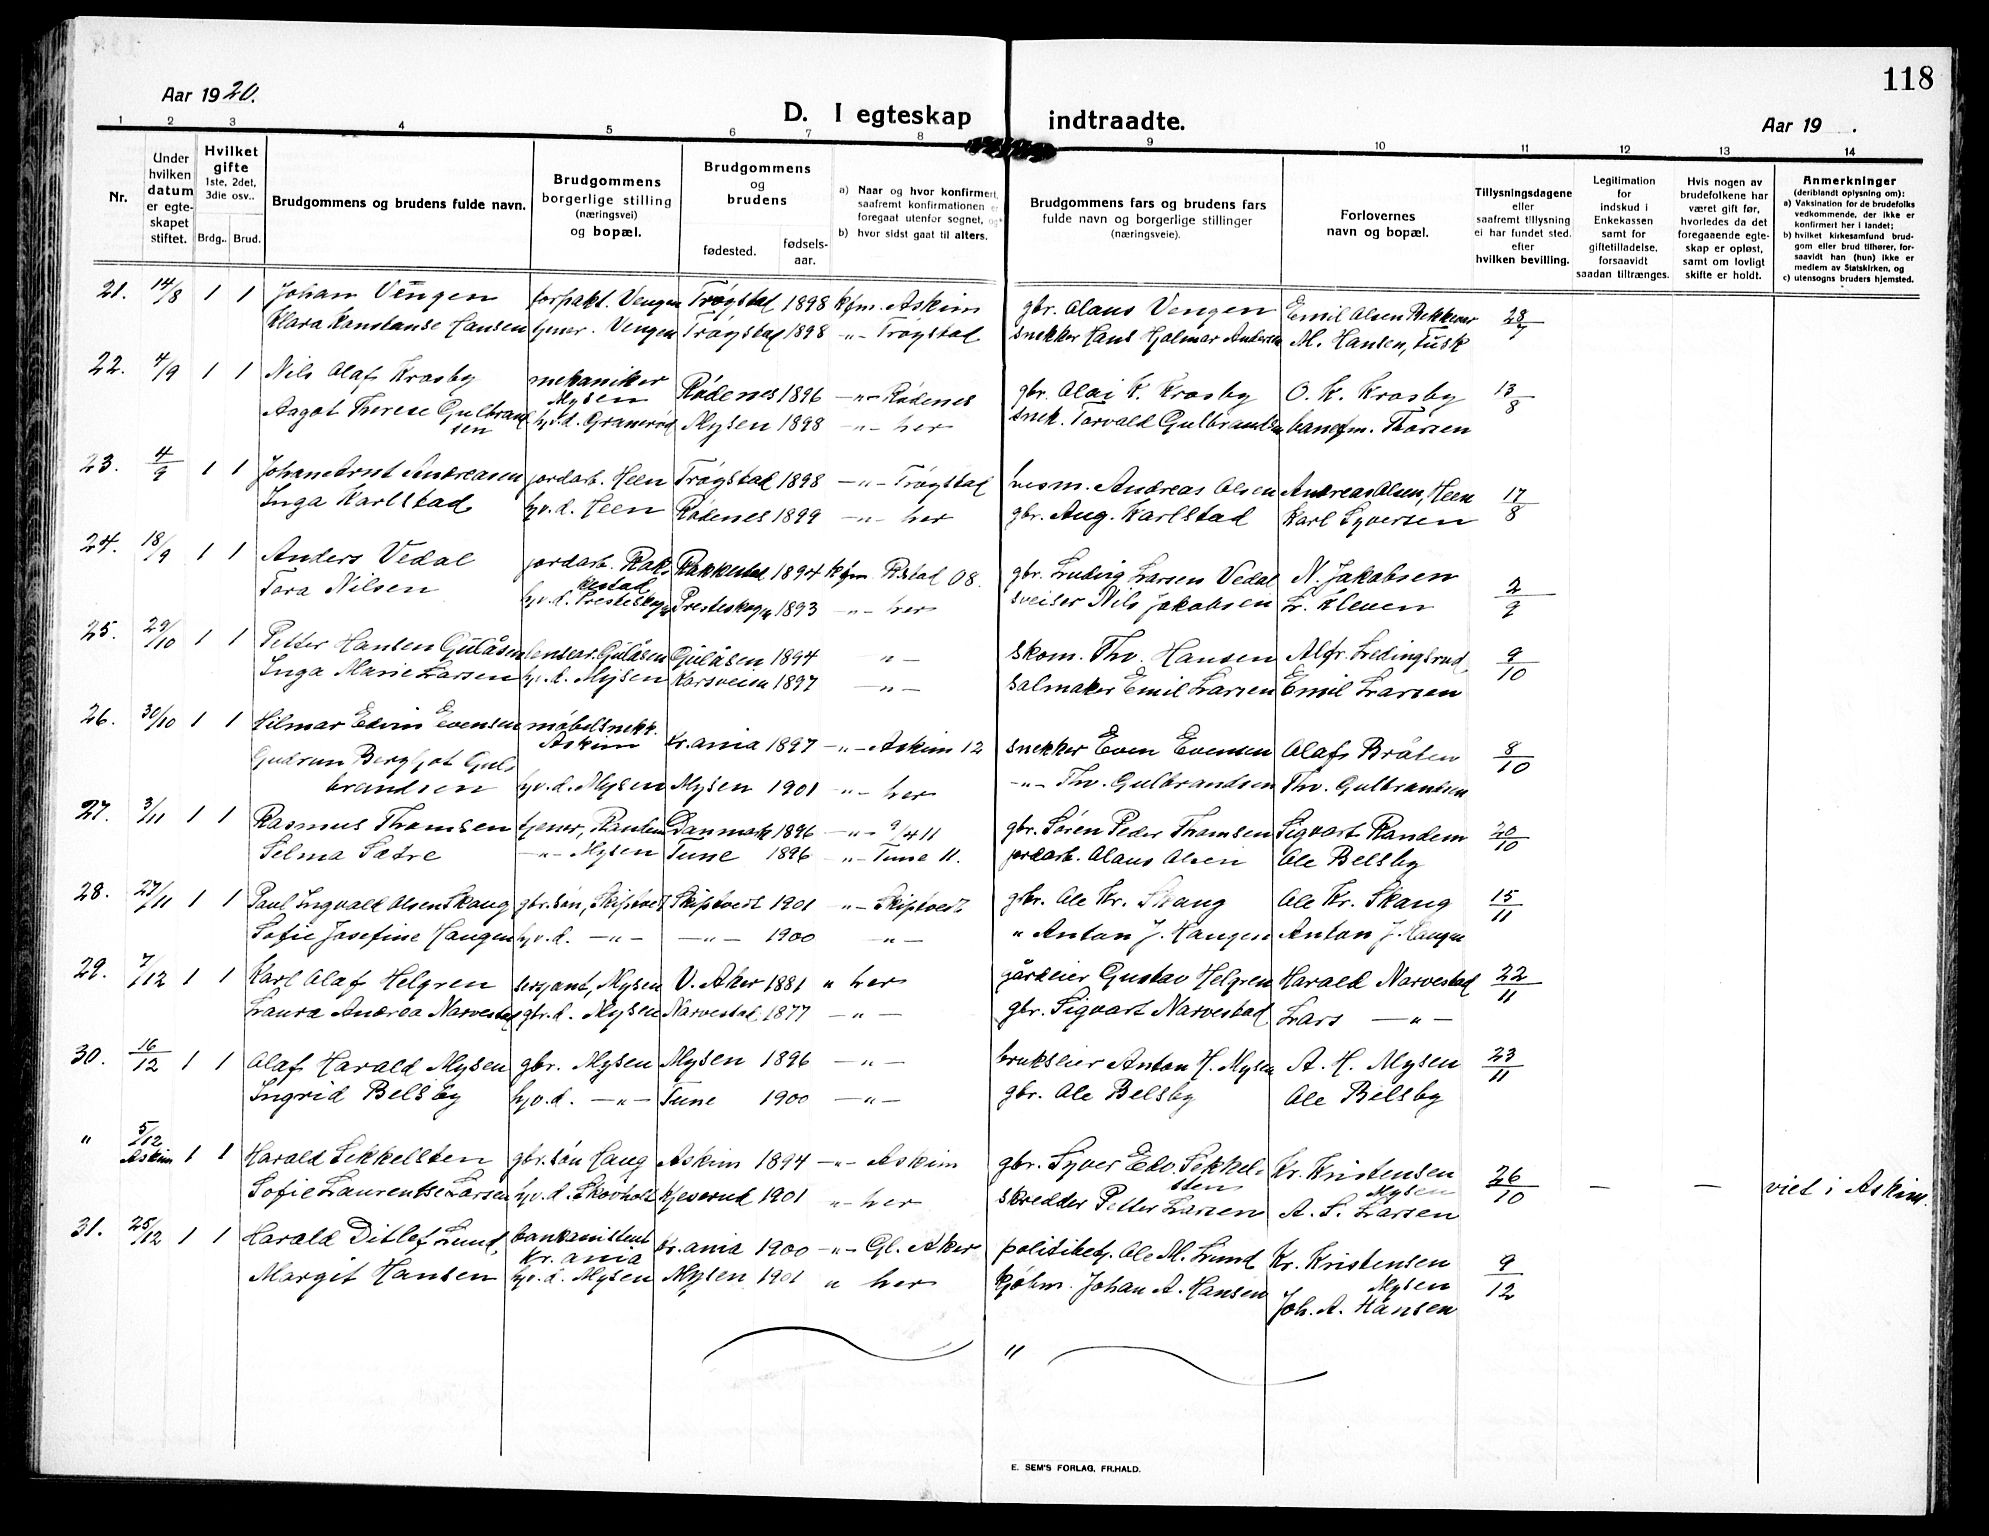 118
Aar 1920.
D. I egteskap indtraadte.
Aar 19 .
1 2 3 4 5 6 7 8 9 10 11 12 13 14
Nr.
Under hvilken datum er egteskapet stiftet.
Hvilket gifte 1ste, 2det, 3die osv..
Brdg.. Brud.
Brudgommens og brudens fulde navn.
Brudgommens borgerlige stilling (næringsvei) og bopæl.
Brudgommens og brudens
fødested. fødsels-aar.
a) Naar og hvor konfirmert, saafremt konfirmationen er foregaat utenfor sognet, og
b) hvor sidst gaat til alters.
Brudgommens fars og brudens fars fulde navn og borgerlige stillinger (næringsveie).
Forlovernes navn og bopæl.
Tillysningsdagene eller saafremt tillysning ei har fundet sted, efter hvilken bevilling.
Legitimation for indskud i Enkekassen samt for giftetilladelse, forsaavidt saadan tiltrænges.
Hvis nogen av brudefolkene har været gift før, hvorledes da det foregaaende egteskap er opløst, samt om lovligt skifte er holdt.
Anmerkninger (deriblandt oplysning om):
a) Vaksination for de brudefolks vedkommende, der ikke er konfirmert her i landet;
b) hvilket kirkesamfund brudgom eller brud tilhører, forsaavidt han (hun) ikke er medlem av Statskirken, og
c) utensogns bruders hjemsted.
21. 14/8 1 1 Johan Vengen forpakt. Vengen Trøgstad 1898 kfm. Askim gbr. Olaus Vengen Emil Olsen 28/7
Klara Konstanse Hansen tjener. Vengen Trøgstad 1898 -"- Trøgstad snekker Hans Hjalmar Andersen M. Hansen, Tusk
22. 4/9 1 1 Nils Olaf Krosby mekaniker Mysen Rødenes 1896 -"- Rødenes gbr. Olai K. Krosby O. K. Krosby 13/8
Aagot Therese Gulbrandsen hj.d. Granerød Mysen 1898 -"- her snek. Torvald Gulbrandsen banefm. Thorsen
23. 4/9 1 1 Johan Arnt Andreasen jordarb. Heen Trøgstad 1898 -"- Trøgstad husm. Andreas Olsen Andreas Olsen, Heen 17/8
Inga Karlstad hj.d. Heen Rødenes 1899 -"- her gbr. Aug. Karlstad Karl Syversen
24. 18/9 1 1 Anders Vedal jordarb. Rakkestad Rakkestad 1894 kfm R.stad 08. gbr. Ludvig Larsen Vedal N. Jakobsen 2/9
Tora Nilsen hj.d. Presteskogn Presteskogn 1893 -"- her sveiser Nils Jakobsen L. Kleven
25. 29/10 1 1 Petter Hansen Gulåsen lensar. Gulåsen Gulåsen 1894 -"- skom. Th. Hansen Alfr. Ledingsrud 9/10
Inga Marie Larsen hj.d. Mysen Korsveien 1897 -"- salmaker Emil Larsen Emil Larsen
26. 30/10 1 1 Hilmar Edvin Evensen møbelsnekk. Askim Kr.ania 1897 -"- Askim 12 snekker Even Evensen Olaf Bråten 8/10
Gudrun Bergljot Gulbrandsen hj.d. Mysen Mysen 1901 -"- her -"- Th. Gulbrandsen Th. Gulbrandsen
27. 3/11 1 1 Rasmus Thomsen tjener, Randem Danmark 1896 -"- 9/4 11 gbr. Søren Peder Thomsen Sigvart Randem 20/10
Selma Sætre -"- Mysen Tune 1896 -"- Tune 11. jordarb. Olaus Olsen Ole Belsby
28. 27/11 1 1 Paul Ingvald Olsen Skaug gbr.søn, Skiptvet Skiptvedt 1901 -"- Skiptvedt gbr. Ole Kr. Skaug Ole Kr. Skaug 15/11
Sofie Josefine Haugen hj.d. -"- -"- 1900 -"- " Anton J. Haugen Anton J. Haugen
29. 7/12 1 1 Karl Olaf Helgren sersjant, Mysen V. Aker 1881 " her gårdeier Gustav Helgren Harald Narvestad 22/11
Laura Andrea Narvestad gbr.d. Mysen Narvestad 1877 -"- gbr. Sigvart Narvestad Lars -"-
30. 16/12 1 1 Olaf Harald Mysen gbr. Mysen Mysen 1896 -"- brukseier Anton H. Mysen A. H. Mysen 23/11
Ingrid Belsby hj.d. -"- Tune 1900 -"- gbr. Ole Belsby Ole Belsby
" 5/12 Askim 1 1 Harald Sekkelsten gbr.søn Haug Askim 1894 -"- Askim gbr. Syver Edv. Sekkelsten Kr. Kristensen Mysen 26/10 — — viet i Askim.
Sofie Laurentse Larsen hj.d. Skovholt Kjeserud 1901 " her skredder Petter Larsen A. S. Larsen
31. 25/12 1 1 Harald Ditlef Lund, bankassistent Kr.ania Kr.ania 1900 -"- Gl. Aker politibetj. Ole M. Lund Kr. Kristensen Mysen 9/12
Margit Hansen hj.d. Mysen Mysen 1901 " her kjøbm. Johan A. Hansen Joh. A. Hansen
"
E. SEM'S FORLAG, FR.HALD.